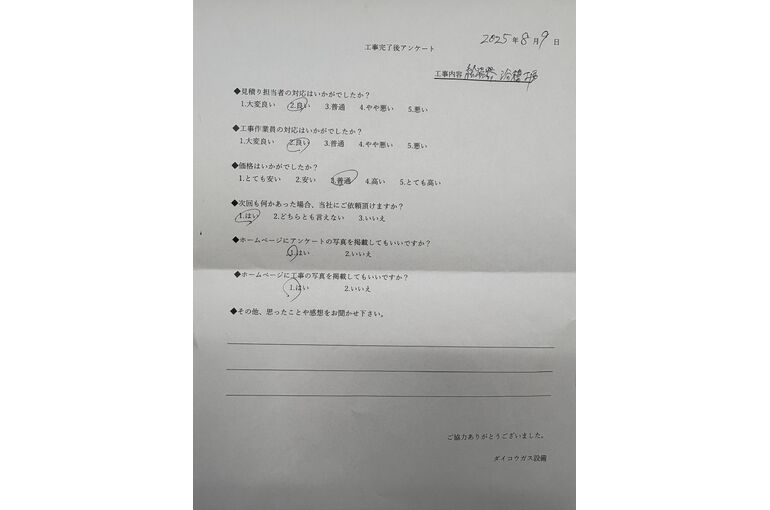 2025年8月9日
工事完了後アンケート
工事内容 給湯器
◆見積り担当者の対応はいかがでしたか？
1.大変良い 2.良い 3.普通 4.やや悪い 5.悪い
◆工事作業員の対応はいかがでしたか？
1.大変良い 2.良い 3.普通 4.やや悪い 5.悪い
◆価格はいかがでしたか？
1.とても安い 2.安い 3.普通 4.高い 5.とても高い
◆次回も何かあった場合、当社にご依頼頂けますか？
1.はい 2.どちらとも言えない 3.いいえ
◆ホームページにアンケートの写真を掲載してもいいですか？
1.はい 2.いいえ
◆ホームページに工事の写真を掲載してもいいですか？
1.はい 2.いいえ
◆その他、思ったことや感想をお聞かせ下さい。
ご協力ありがとうございました。
ダイコウガス設備